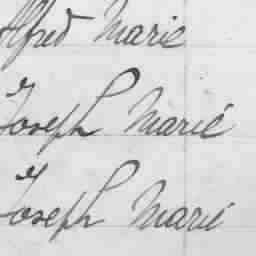 Alfred Marie
Joseph Marié
Joseph Marié